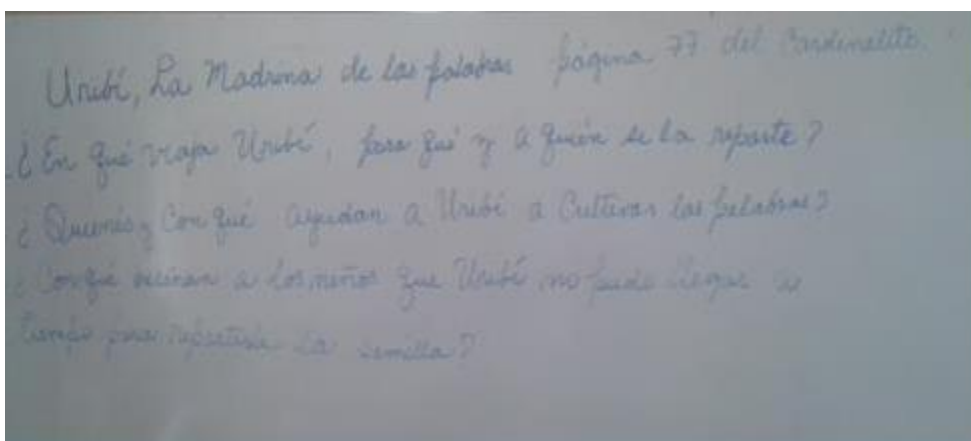 Uribí, La Madrina de las palabras página 77 del Cardenalito.
¿En qué viaja Uribí, para qué y a quién se la reparte?
¿Quienes y con qué ayudan a Uribí a Cultivar las palabras?
¿Con qué a los niños que Uribí no pudo llegar a
tiempo para repartirle la semilla?